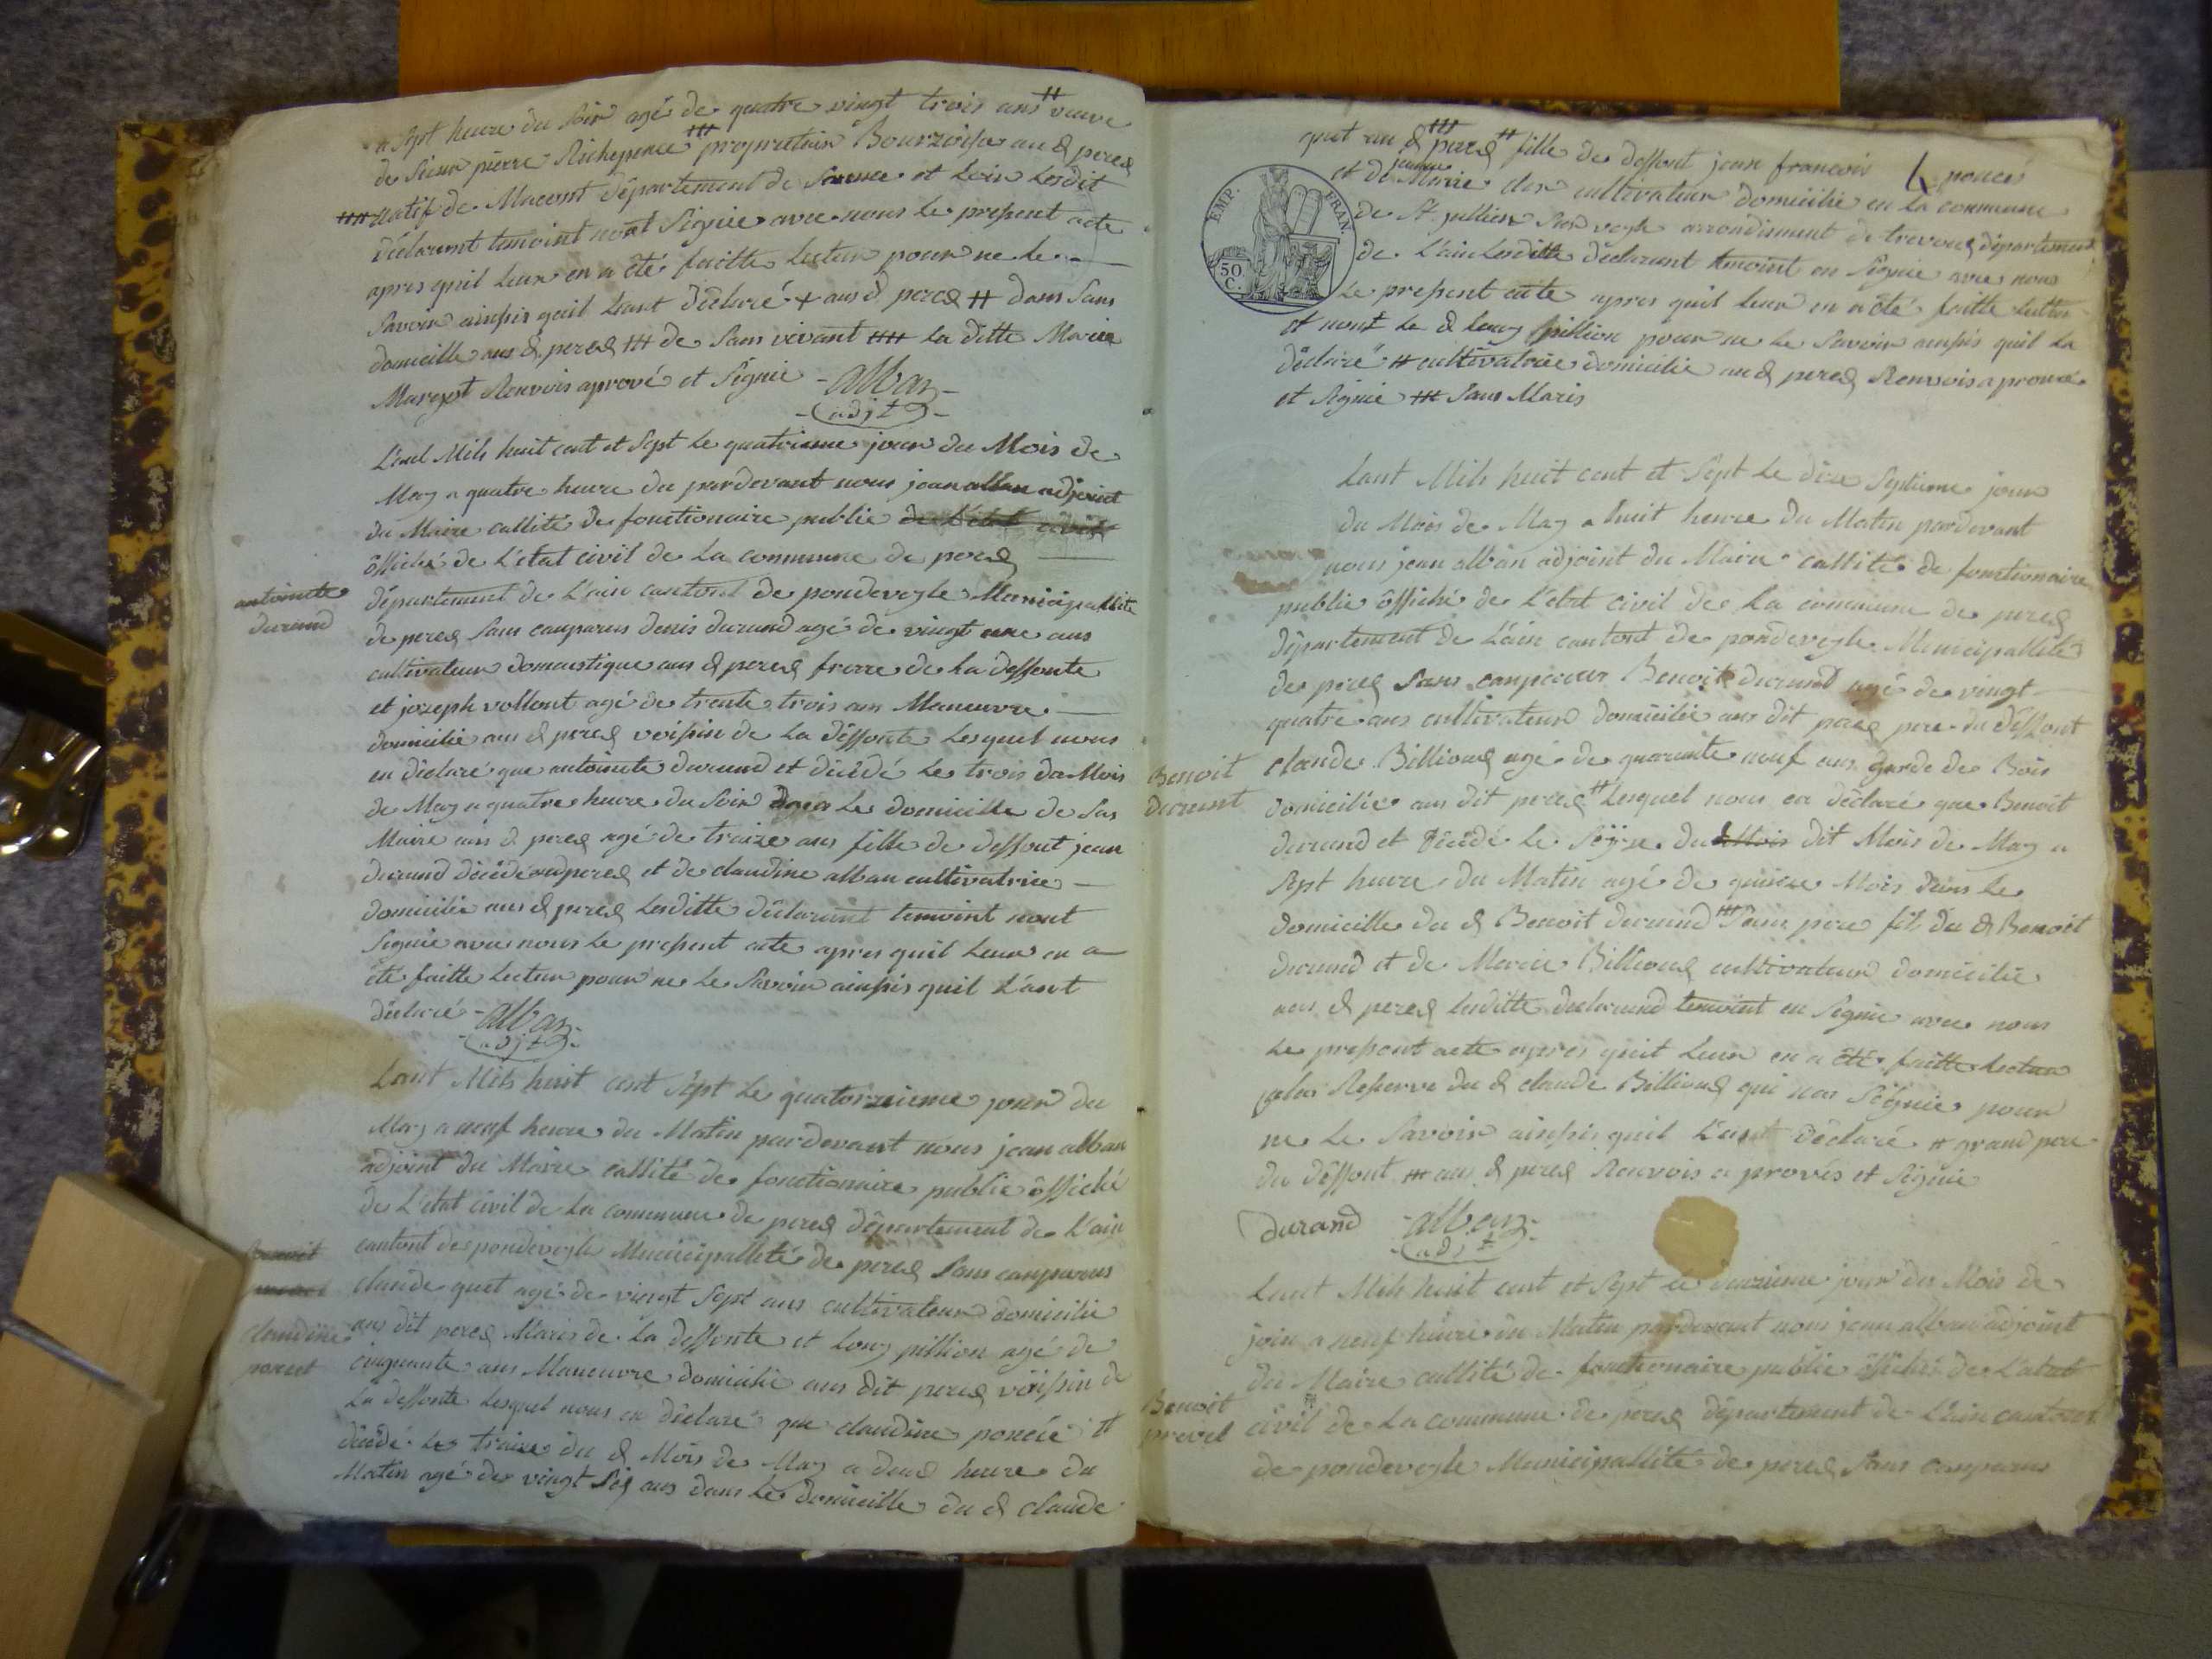 a Sept heure du Soir agé de quatre vingt trois ans ++ veuve
de Sieur pierre Richeperace +++ propriettair Bourzoise au d perex
++++ natif de Macont département de et Loir Lesdit
déclarant temoint nont Signie avec nous le present acte
apres quil leur en a été faitte lectur pour ne le
Savoir ainssis quil lant déclaré + aus d. perex ++ dans Sans
domicille aus d. perex +++ de Sans vivant ++++ la ditte Marie
Margot Renvois aprové et Signié - alban -
- adjt -
L'ent Mils huit cent et Sept Le quatrieme jour du Mois de
May a quatre heure du pardevant nous jean alban adjoint
du Maire callité de fonctionaire public de L'etat civil
ôffiché de L'etat civil de La commune de perex
antoinette
durand
département de L'ain cantont de pondevegle Municipallité
de perex Sans comparus denis durand agé de vingt une ans
cultivateur domaistique aus d perex frerre de la deffonte
et jozeph vollent agé de trente trois ans Maneuvre
domicilié aus d perex voissin de La deffonte Lesquel nous
en déclaré que antoinete durand et décédé Le trois du Mois
de May a quatre heure du Soir dans Le domicille de Sas
Maire aus d. perex agé de traize ans fille de deffont jean
durand décédé aud perex et de claudine alban cultivatrice
domicilié aus d perex Lesditte déclarant temoint nont
Signié avec nous Le present acte apres quil Leur en a
été faitte Lectur pour ne Le Savoir ainssis quil L'ant
déclaré - alban -
- adjt -
Lant Mils huit cent Sept Le quatorzieme jour du
May a neuf heure du Matin pardevant nous jean alban
adjoint du Maire callité de fonctionaire public ôffiché
de L'etat civil de La commune de perex département de L'ain
cantont de pondevegle Municipallité de perex Sans comparus
claude quet agé de vingt Sept ans cultivateur domicilié
claudine
poncet
aus dit perex Maris de La deffonte et Louy pillion agé de
cinquante ans Maneuvre domicilié aus dit perex voissin de
La deffonte Lesquel nous en déclaré que claudine poncée et
décédé Le traize du d Mois de May a deux heure du
Matin agé de vingt Sis ans dans Le domicille du d claude
quet au d +++ perex ++ fille de deffont jean francois poncés
et de jeanne Marie cler cultivateur domicilié en La commune
de St jullien Sur vegle arrondisment de trevoux département
de L'ain Lesditte déclarant temoint en Signie avec nous
Le present acte apres quil leur en a été faitte lectur
et nont Le d Louy pillion pour ne Le Savoir ainssis quil La
déclaré ++ cultivatrice domicilié au d perex Renvois aprouvé
et Signié +++ Sans Maris
EMP. FRAN.
50 C.
Lant Mils huit cent et Sept Le dixe Septieme jour
du Mois de May a huit heure du Matin pardevant
nous jean alban adjoint du Maire callité de fonctionaire
public ôffiché de L'etat civil de La commune de perex
département de L'ain cantont de pondevegle Municipallité
de perex Sans comparus Benoit durand agé de vingt
quatre ans cultivateur domicilié aus dit perex pere du deffont
Benoit
durant
claude Billioux agé de quarante neuf ans garde de Bois
domicilié aus dit perex ++ Lesquel nous en déclaré que Benoit
durand et décédé Le Sejze du Mois dit Mois de May a
Sept heure du Matin agé de quinze Mois dans Le
domicille du d Benoit durand +++ Sans pere fils du d Benoit
durand et de Marie Billioux cultivateur domicilié
aus d perex Lesditte déclarand temoint en Signie avec nous
Le present acte apres quil Leur en a été faitte Lectur
Reserve du d claude Billioux qui nas Signie pour
ne Le Savoir ainssis quil L'ant déclaré ++ grand pere
du deffont +++ aus d perex Renvois a provés et Signié
Durand - alban -
- adjt -
Lant Mils huit cent et Sept Le jour du Mois de
join a neuf heure du Matin pardevant nous jean alban adjoint
du Maire callité de fonctionaire public ôffiché de L'etat
Benoit
prevel
civil de La commune de perex département de L'ain cantont
de pondevegle Municipallité de perex Sans comparus